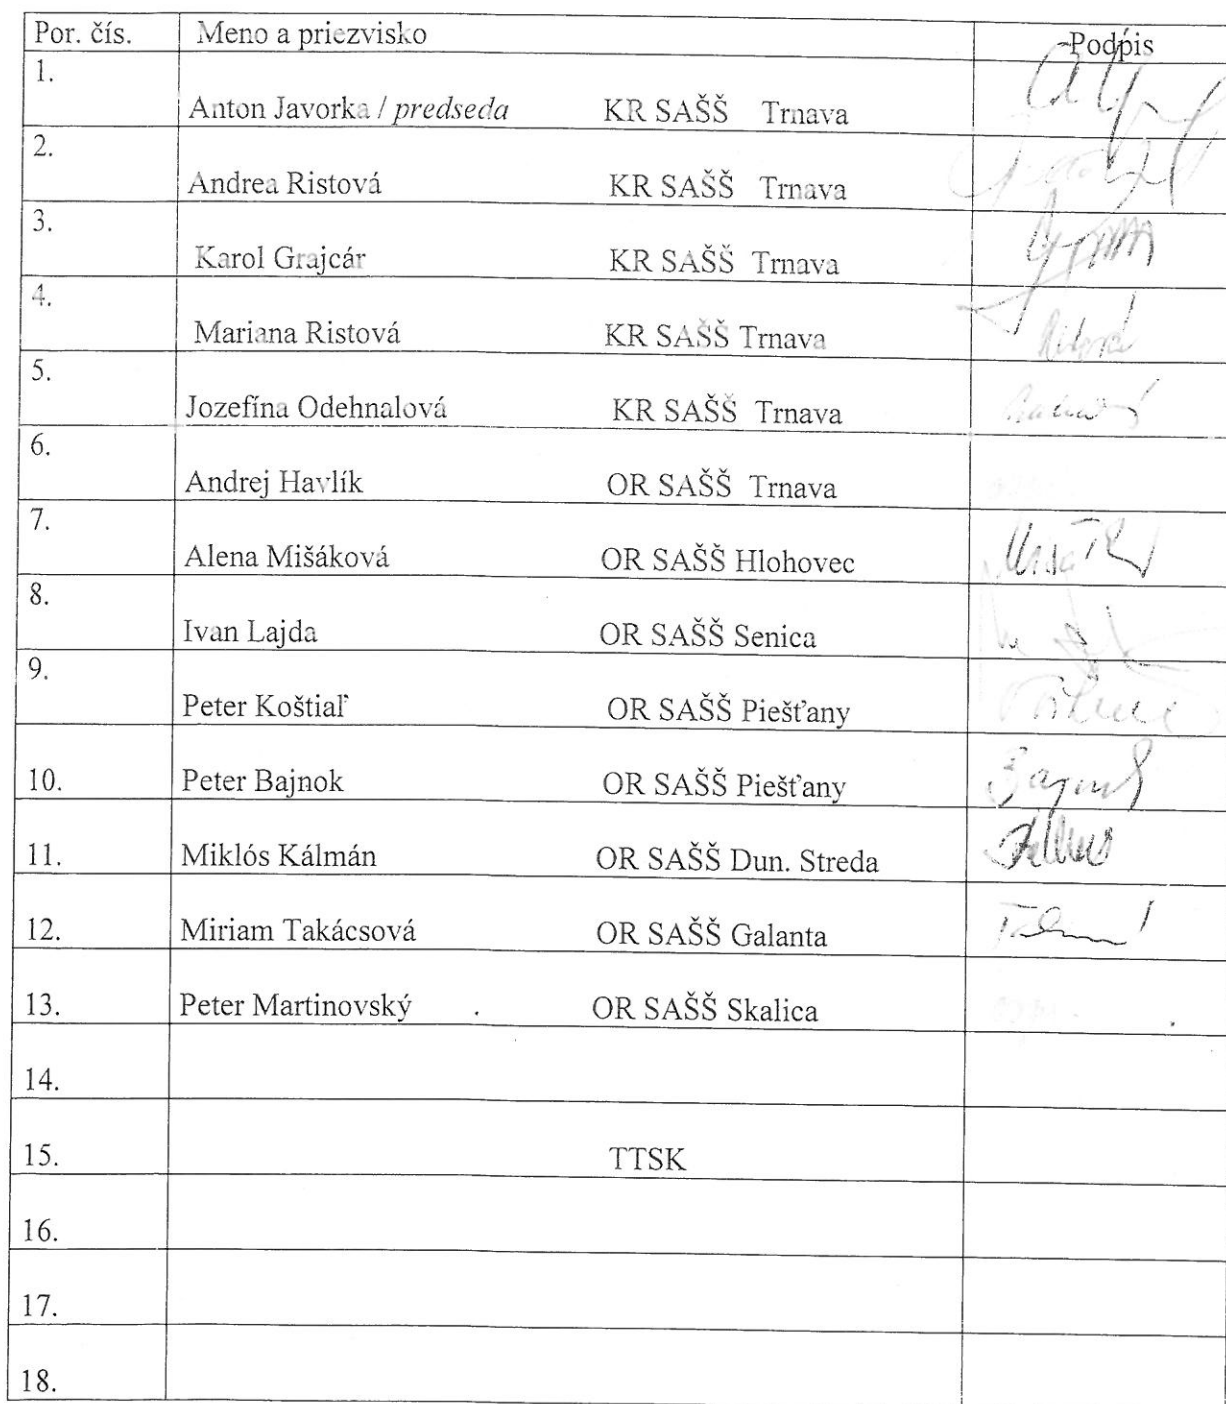 Por. čís. Meno a priezvisko Podpis
1.
Anton Javorka / predseda KR SAŠŠ Trnava
2.
Andrea Ristová KR SAŠŠ Trnava
3.
Karol Grajcár KR SAŠŠ Trnava
4.
Mariana Ristová KR SAŠŠ Trnava
5.
Jozefína Odehnalová KR SAŠŠ Trnava
6.
Andrej Havlík OR SAŠŠ Trnava
7.
Alena Mišáková OR SAŠŠ Hlohovec
8.
Ivan Lajda OR SAŠŠ Senica
9.
Peter Koštiaľ OR SAŠŠ Piešťany
10. Peter Bajnok OR SAŠŠ Piešťany
11. Miklós Kálmán OR SAŠŠ Dun. Streda
12. Miriam Takácsová OR SAŠŠ Galanta
13. Peter Martinovský OR SAŠŠ Skalica
14.
15. TTSK
16.
17.
18.